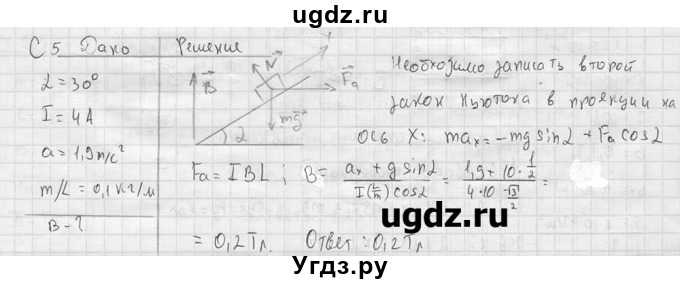 ugdz.ru
C 5 Дано Решение
α = 30°
I = 4 A
a = 1,9 м/с²
m/L = 0,1 кг/м
B - ?
B N Fa mg α
Необходимо записать второй
закон Ньютона в проекции на
ось X: maₓ = -mg sinα + Fa cosα
Fa = IBL ; B = (aₓ + g sinα) / (I(L/m) cosα) = (1,9 + 10 · 1/2) / (4·10 · √3/2) =
= 0,2 Тл. Ответ: 0,2 Тл.
ugdz.ru
Угдз.ру